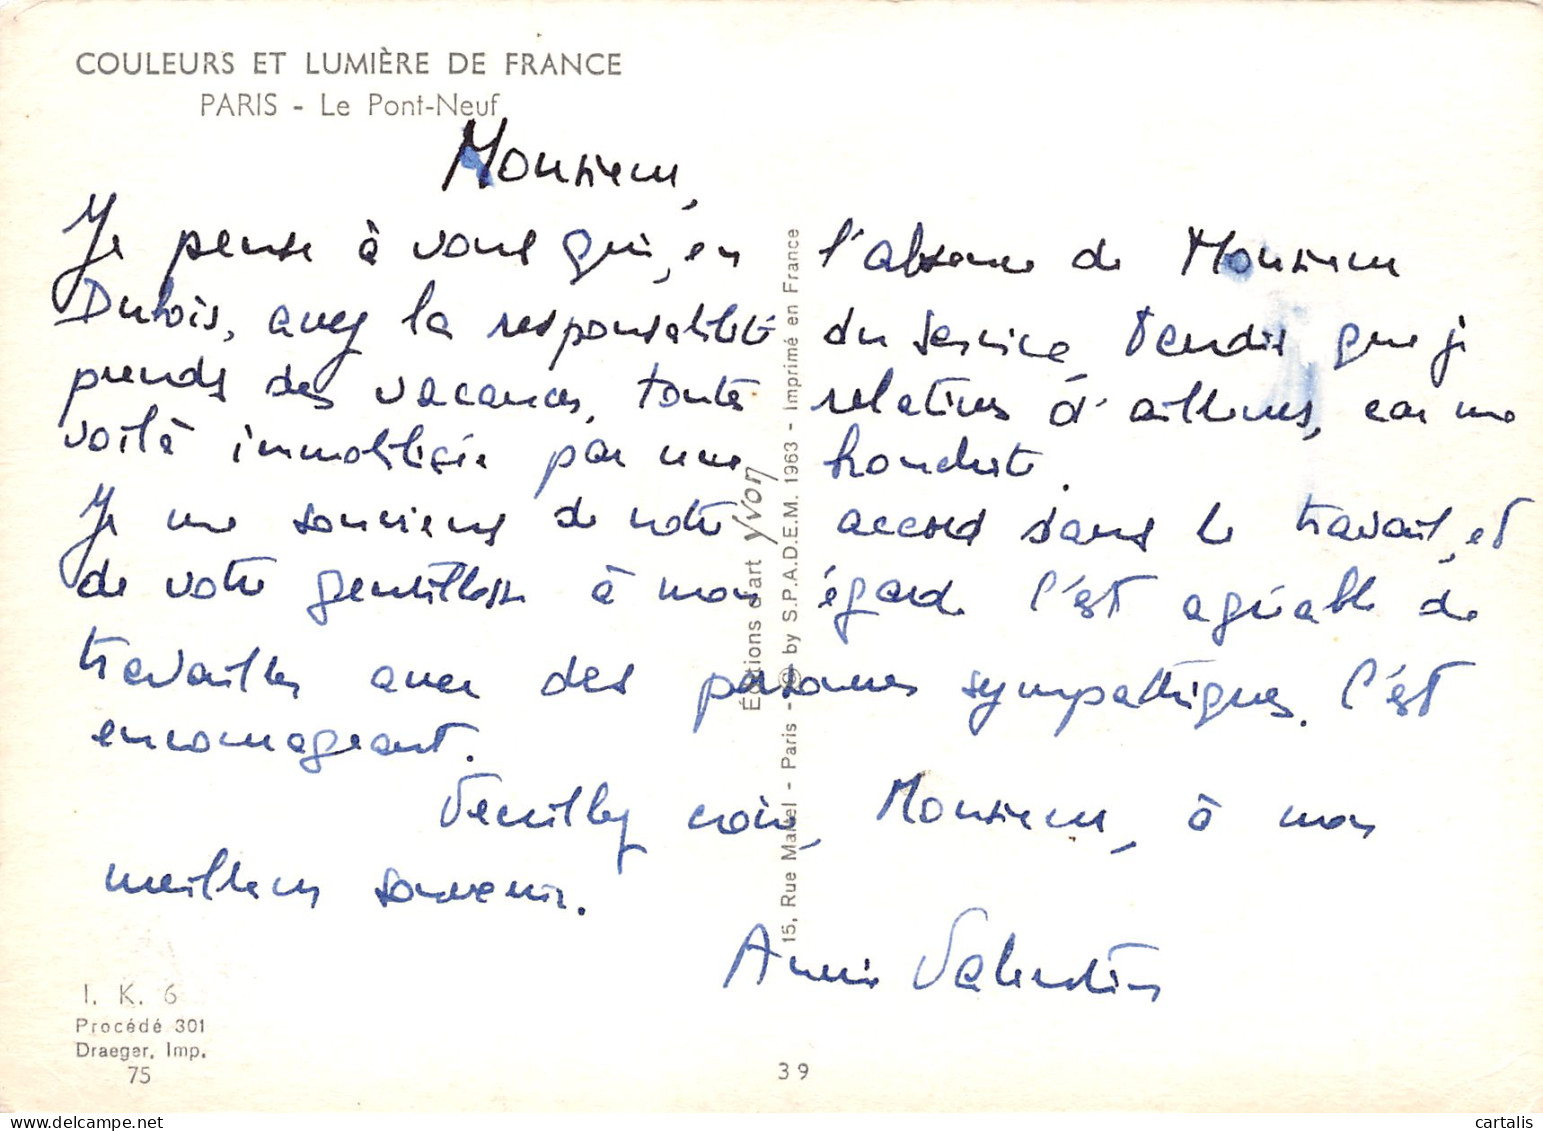 COULEURS ET LUMIÈRE DE FRANCE
PARIS - Le Pont-Neuf
Monsieur,
Je pense à vous qui, en l'absence de Monsieur
Dubois, avez la responsabilité du service, tandis que je
prends des vacances, toutes relatives d'ailleurs, car me
voilà immobilisée par une bronchite.
Je me souviens de notre accord dans le travail, et
de votre gentillesse à mon égard. C'est agréable de
travailler avec des personnes sympathiques. C'est
encourageant.
Veuillez croire, Monsieur, à mon
meilleur souvenir.
Annie Valentin
Éditions d'art Yvon
15, Rue Martel - Paris - © by S.P.A.D.E.M. 1963 - Imprimé en France
I. K. 6
Procédé 301
Draeger, Imp.
75
39
cartalis